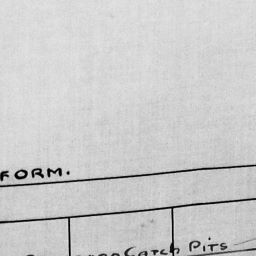 FORM.
Catch Pits